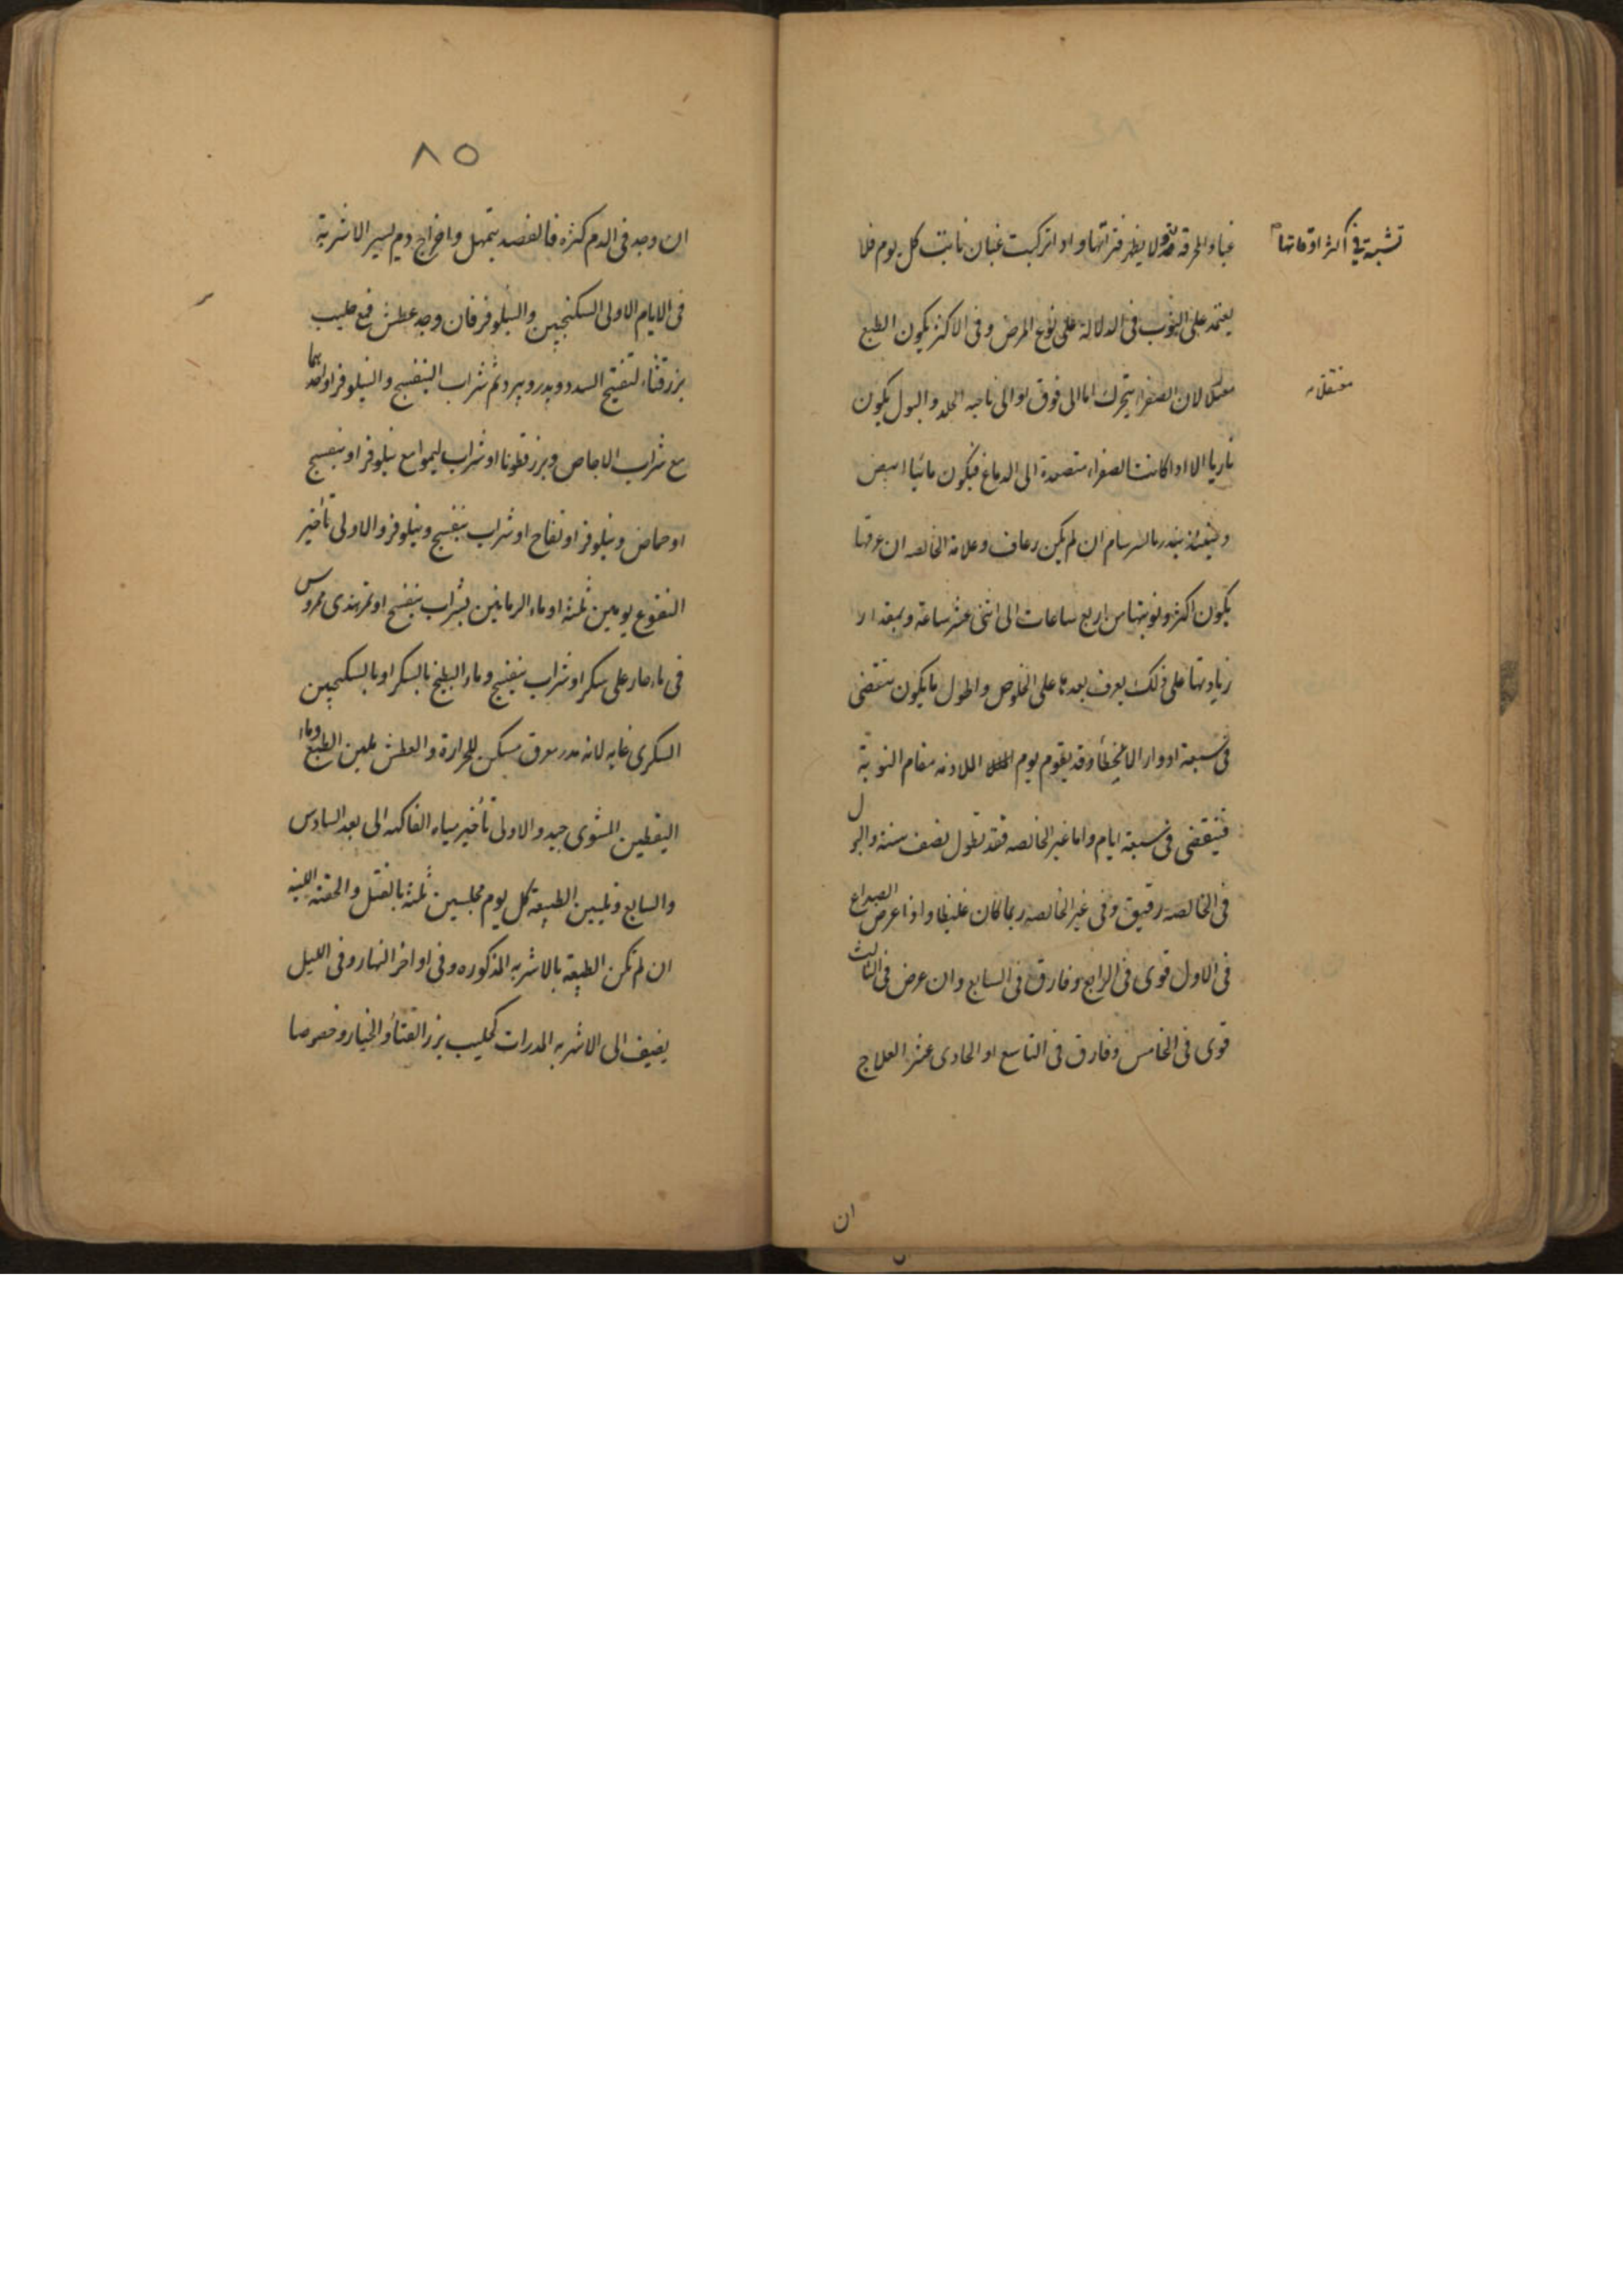 غبا والمحرقة ولا يظهر فتراتها واذا تركبت غبان نابت كل يوم فلا
تشبه في أكثر اوقاتها
يعتمد على النوب فى الدلالة على نوع المرض وفى الاكثر يكون الطبع
لان الصفراء يتحرك اما الى فوق او الى ناحيه الجلد والبول يكون
ناريا الا اذا كانت الصفراء متصعدة الى الدماغ فيكون مائيا ابيض
وحينئذ ينذر بالسرسام ان لم يكن رعاف وعلامة الخالصه ان عرقها
يكون اكثر ونوبتها من اربع ساعات الى اثنى عشر ساعة وبمقدار
زيادتها على ذلك يعرف بعدها على الخلوص واطول ما يكون ينقضى
فى سبعة ادوار الا لخطأ وقد يقوم يوم مقام النوبة
فينقضى فى سبعة ايام واما غير الخالصه فقد تطول نصف سنة والبول
فى الخالصه رقيق وفى غير الخالصه ربما كان غليظا واذا عرض الصداع
فى الاول قوى فى الرابع وفارق فى السابع وان عرض فى الثالث
قوى فى الخامس وفارق فى التاسع او الحادى عشر العلاج
ان
٨٥
ان وجد فى الدم كثره فالفصد بتمهل واخراج دم يسير الاشربة
فى الايام الاولى السكنجبين والنيلوفر فان وجد عطش فمع حليب
بزر قثاء لتفتيح السدد ويدر ويبرد ثم شراب البنفسج والنيلوفر او احدهما
مع شراب الاجاص وبزر قطونا او شراب ليموا مع نيلوفر او بنفسج
او حماض ونيلوفر او تفاح او شراب بنفسج ونيلوفر والاولى تأخير
النقوع يومين ثلثة او ماء الرمانين بشراب بنفسج او تمر هندى ممروس
فى ماء حار على سكر او شراب بنفسج وماء البطيخ بالسكر او بالسكنجبين
السكرى غايه لانه مدر معرق مسكن للحرارة والعطش ملين الطبع وماء
اليقطين المشوى جيد والاولى تأخير مياه الفاكهه الى بعد السادس
والسابع وتليين الطبيعة كل يوم مجلسين ثلثة بالفتل والحقنه اللينه
ان لم تكن الطبيعة بالاشربه المذكوره وفى اواخر النهار وفى الليل
يضيف الى الاشربه المدرات كحليب بزر القثاء والخيار وخصوصا